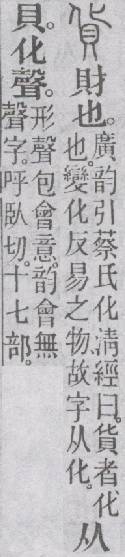 貨財也。廣韵引蔡氏化淸經曰。貨者化也。變化反易之物。故字从化。从
貝。化聲。形聲包會意。韵會無聲字。呼臥切。十七部。